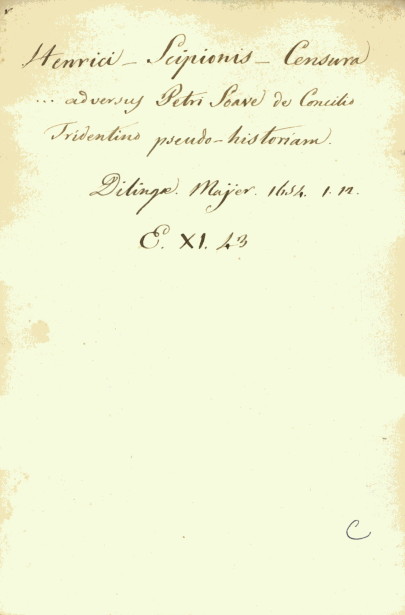 Henrici - Scipionis - Censura
... adversus Petri Soave de Concilio
Tridentino pseudo-historiam.
Dilingæ. Maÿer. 1654. 1. 12.
E. XI. 43
C